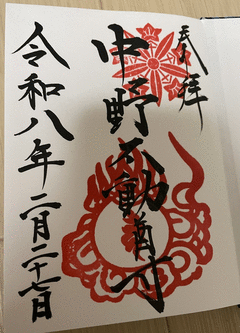 奉拝
中野不動尊
令和八年二月二十七日